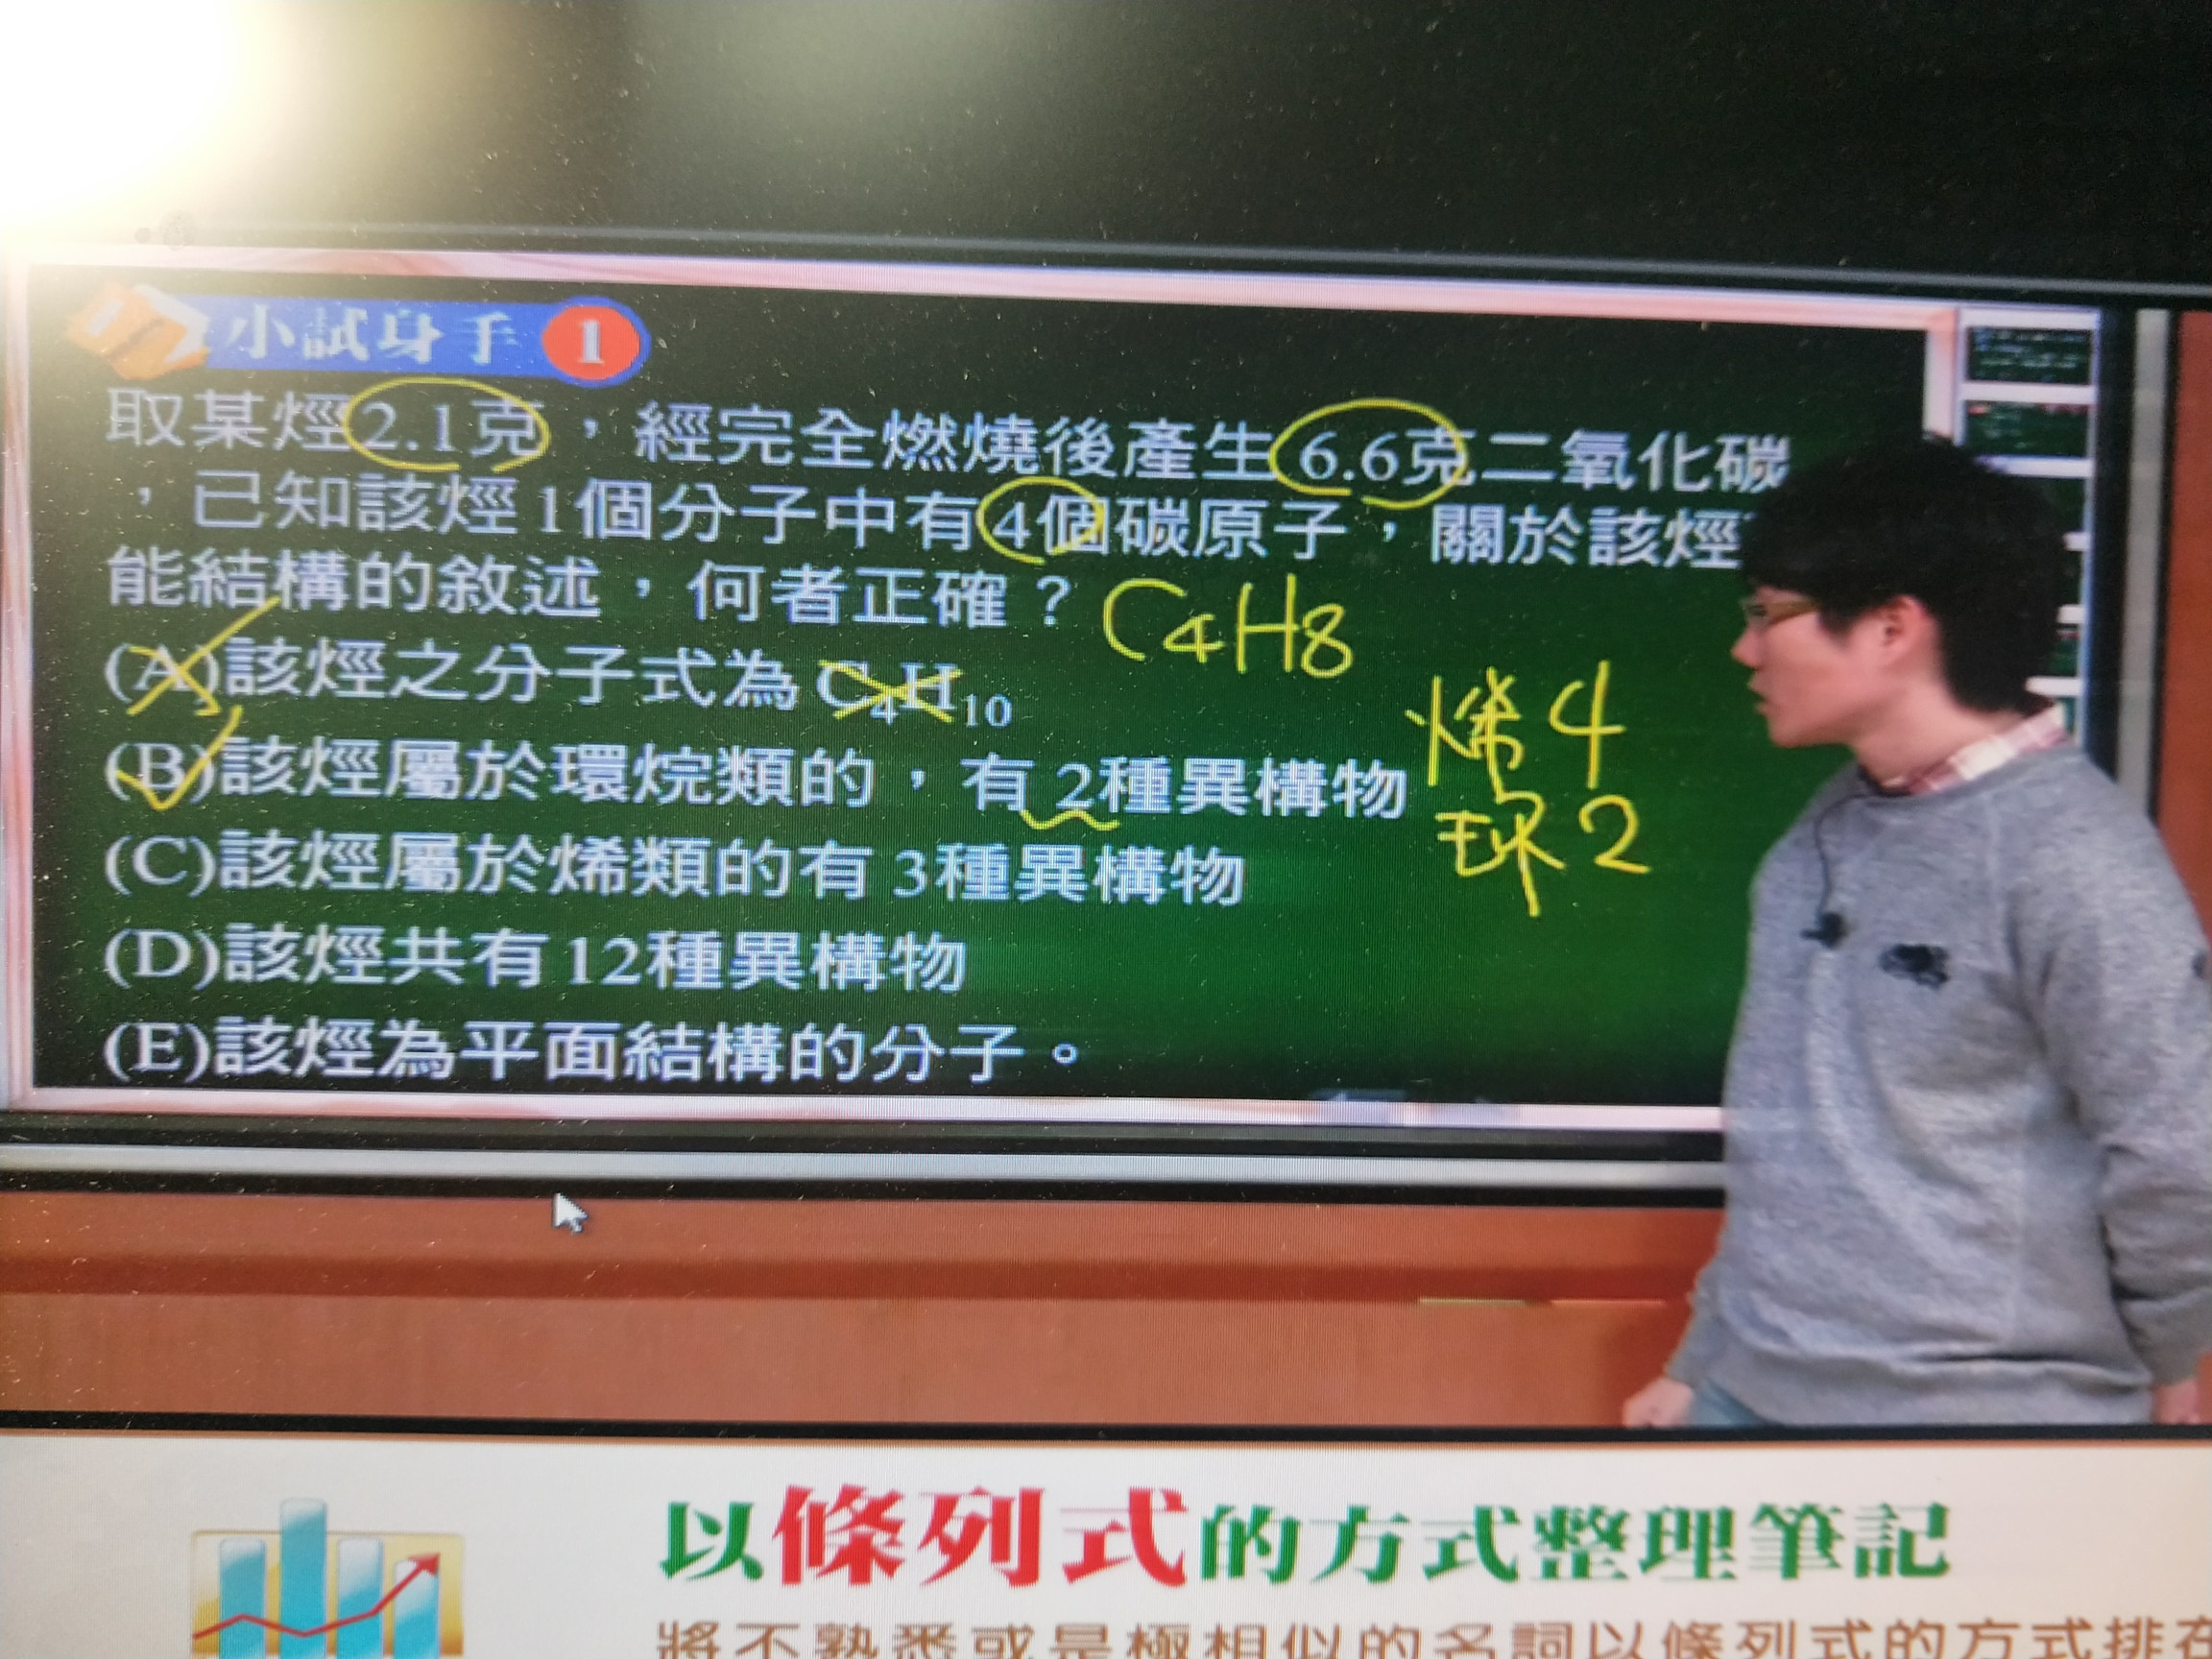 小試身手 1
取某烴2.1克，經完全燃燒後產生6.6克二氧化碳
，已知該烴1個分子中有4個碳原子，關於該烴
能結構的敘述，何者正確？ C4H8
(A)該烴之分子式為C4H10
烯4
(B)該烴屬於環烷類的，有2種異構物
環2
(C)該烴屬於烯類的有3種異構物
(D)該烴共有12種異構物
(E)該烴為平面結構的分子。
以條列式的方式整理筆記
將不熟悉或是極相似的名詞以條列式的方式排在